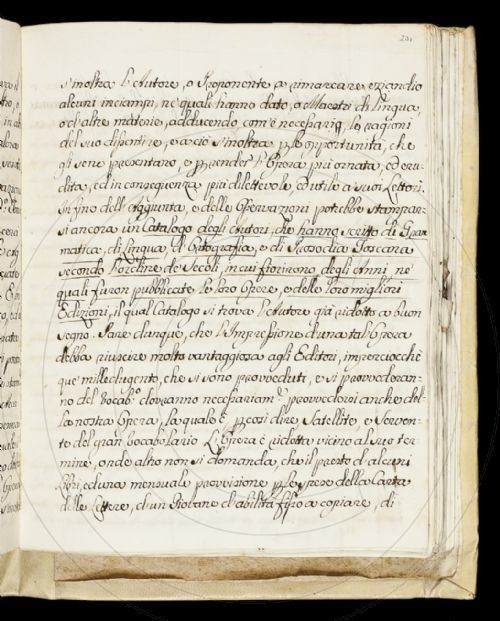 201
s'inoltra l'Autore, o Proponente a rimarcare eziandio
alcuni inciampi, ne' quali hanno dato, o Maestri di lingua,
o d'altre materie, adducendo com'è necessario, le ragioni
del suo dissentire, e a ciò s'inoltra p le opportunità, che
gli sene presentano, e p render l'Opera più ornata, ed eru-
dita, ed in conseguenza più dilettevole, ed utile a' suoi Lettori.
In fine dell'Aggiunta, e delle Osservazioni potrebbe stampar-
si ancora un Catalogo degli Autori, che hanno scritto di Gram
matica, di Lingua, di Ortografia, e di Prosodia Toscana
secondo l'ordine de' Secoli, in cui fiorirono, degli Anni ne'
quali furon pubblicate le loro Opere, e delle loro migliori
Edizioni, il qual Catalogo si trova l'Autore già ridotto a buon
segno. Pare dunque, che l'Impressione d'una tal'Opera
debba riuscire molto vantaggiosa agli Editori, imperciocchè
que' mille dugento, che si sono provveduti, e si provvederan-
no del Vocab.º dovranno necessariam.e provvedersi anche del-
la nostra Opera, la quale è p così dire Satellite, e Serven-
te del gran Vocabolario. L'Opera è ridotta vicino al suo ter-
mine, onde altro non si domanda, che il presto d'alcuni
Libri, ed una mensuale provvisione p le spese della Carta
delle Lettere, d'un Giovane d'abilità fisso a copiare, di